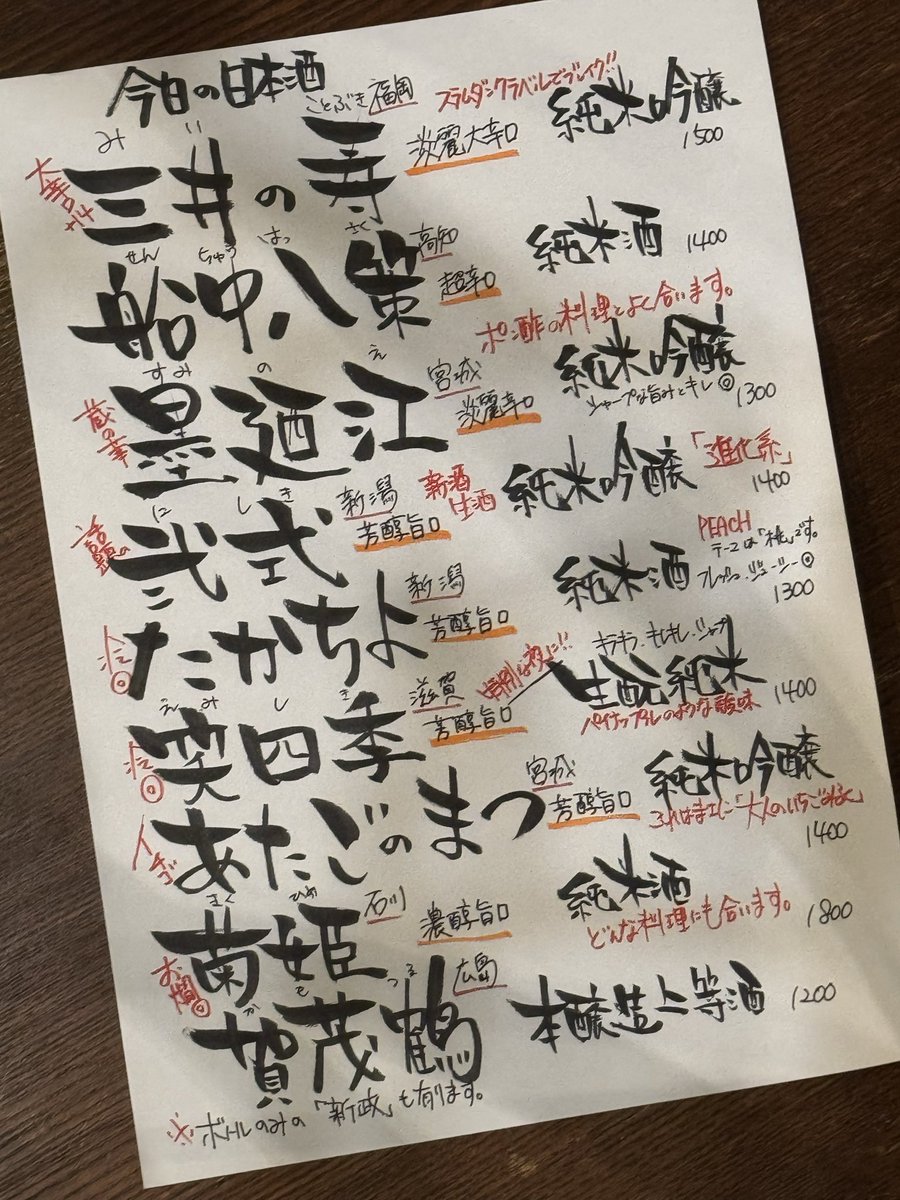 今日の日本酒
ことぶき 福岡 スラムダンクラベルでブレイク!!
みい
大辛口 +14 三井の寿 淡麗大辛口 純米吟醸 1500
せんちゅうはっさく 高知
船中八策 超辛口 純米酒 1400
ポン酢の料理とよく合います。
すみのえ 宮城
蔵の華 墨廼江 淡麗辛口 純米吟醸 1300
シャープな旨みとキレ◎
にしき 新潟
話題の 弐式 芳醇旨口 新酒 生酒 純米吟醸 「進化系」 1400
新潟
たかちよ 芳醇旨口 純米酒 1300
PEACH
テーマは「桃」です。
フレッシュ、ジューシー◎
えみしき 滋賀
笑四季 芳醇旨口 特別な夜に!! 生酛純米 1400
パイナップルのような酸味
宮城
イチゴ あたごのまつ 芳醇旨口 純米吟醸 1400
きくひめ 石川
菊姫 濃醇旨口 純米酒 1800
どんな料理にも合います。
かもつる 広島
お燗◎ 賀茂鶴 本醸造上等酒 1200
※ボトルのみの「新政」も有ります。